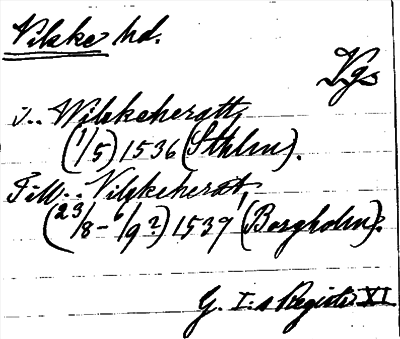 Vilske hd.
Vgs
i.. Wilskeheratt,
(1/5) 1536 (Sthlm).
Till.. Vilskeherat,
(23/8 - 6/9?) 1539 (Borgholm).
G. I:s Registr. XI